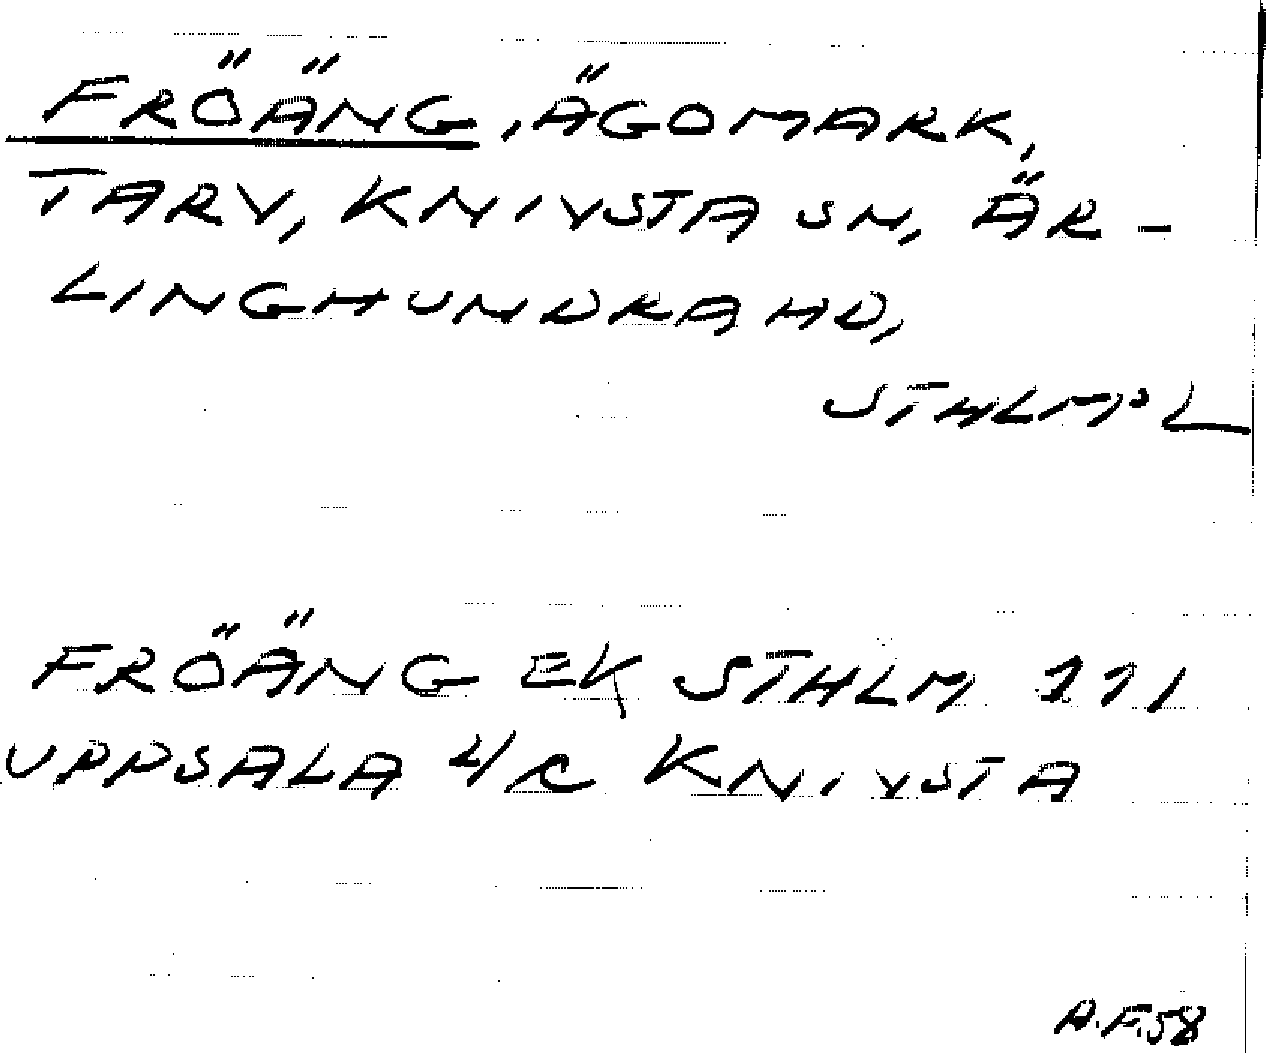 FRÖÄNG, ÄGOMARK,
TARV, KNIVSTA SN, ÄR-
LINGHUNDRA HD,
STHLMS L
FRÖÄNG EK STHLM 111
UPPSALA 4/C KNIVSTA
A.F.58